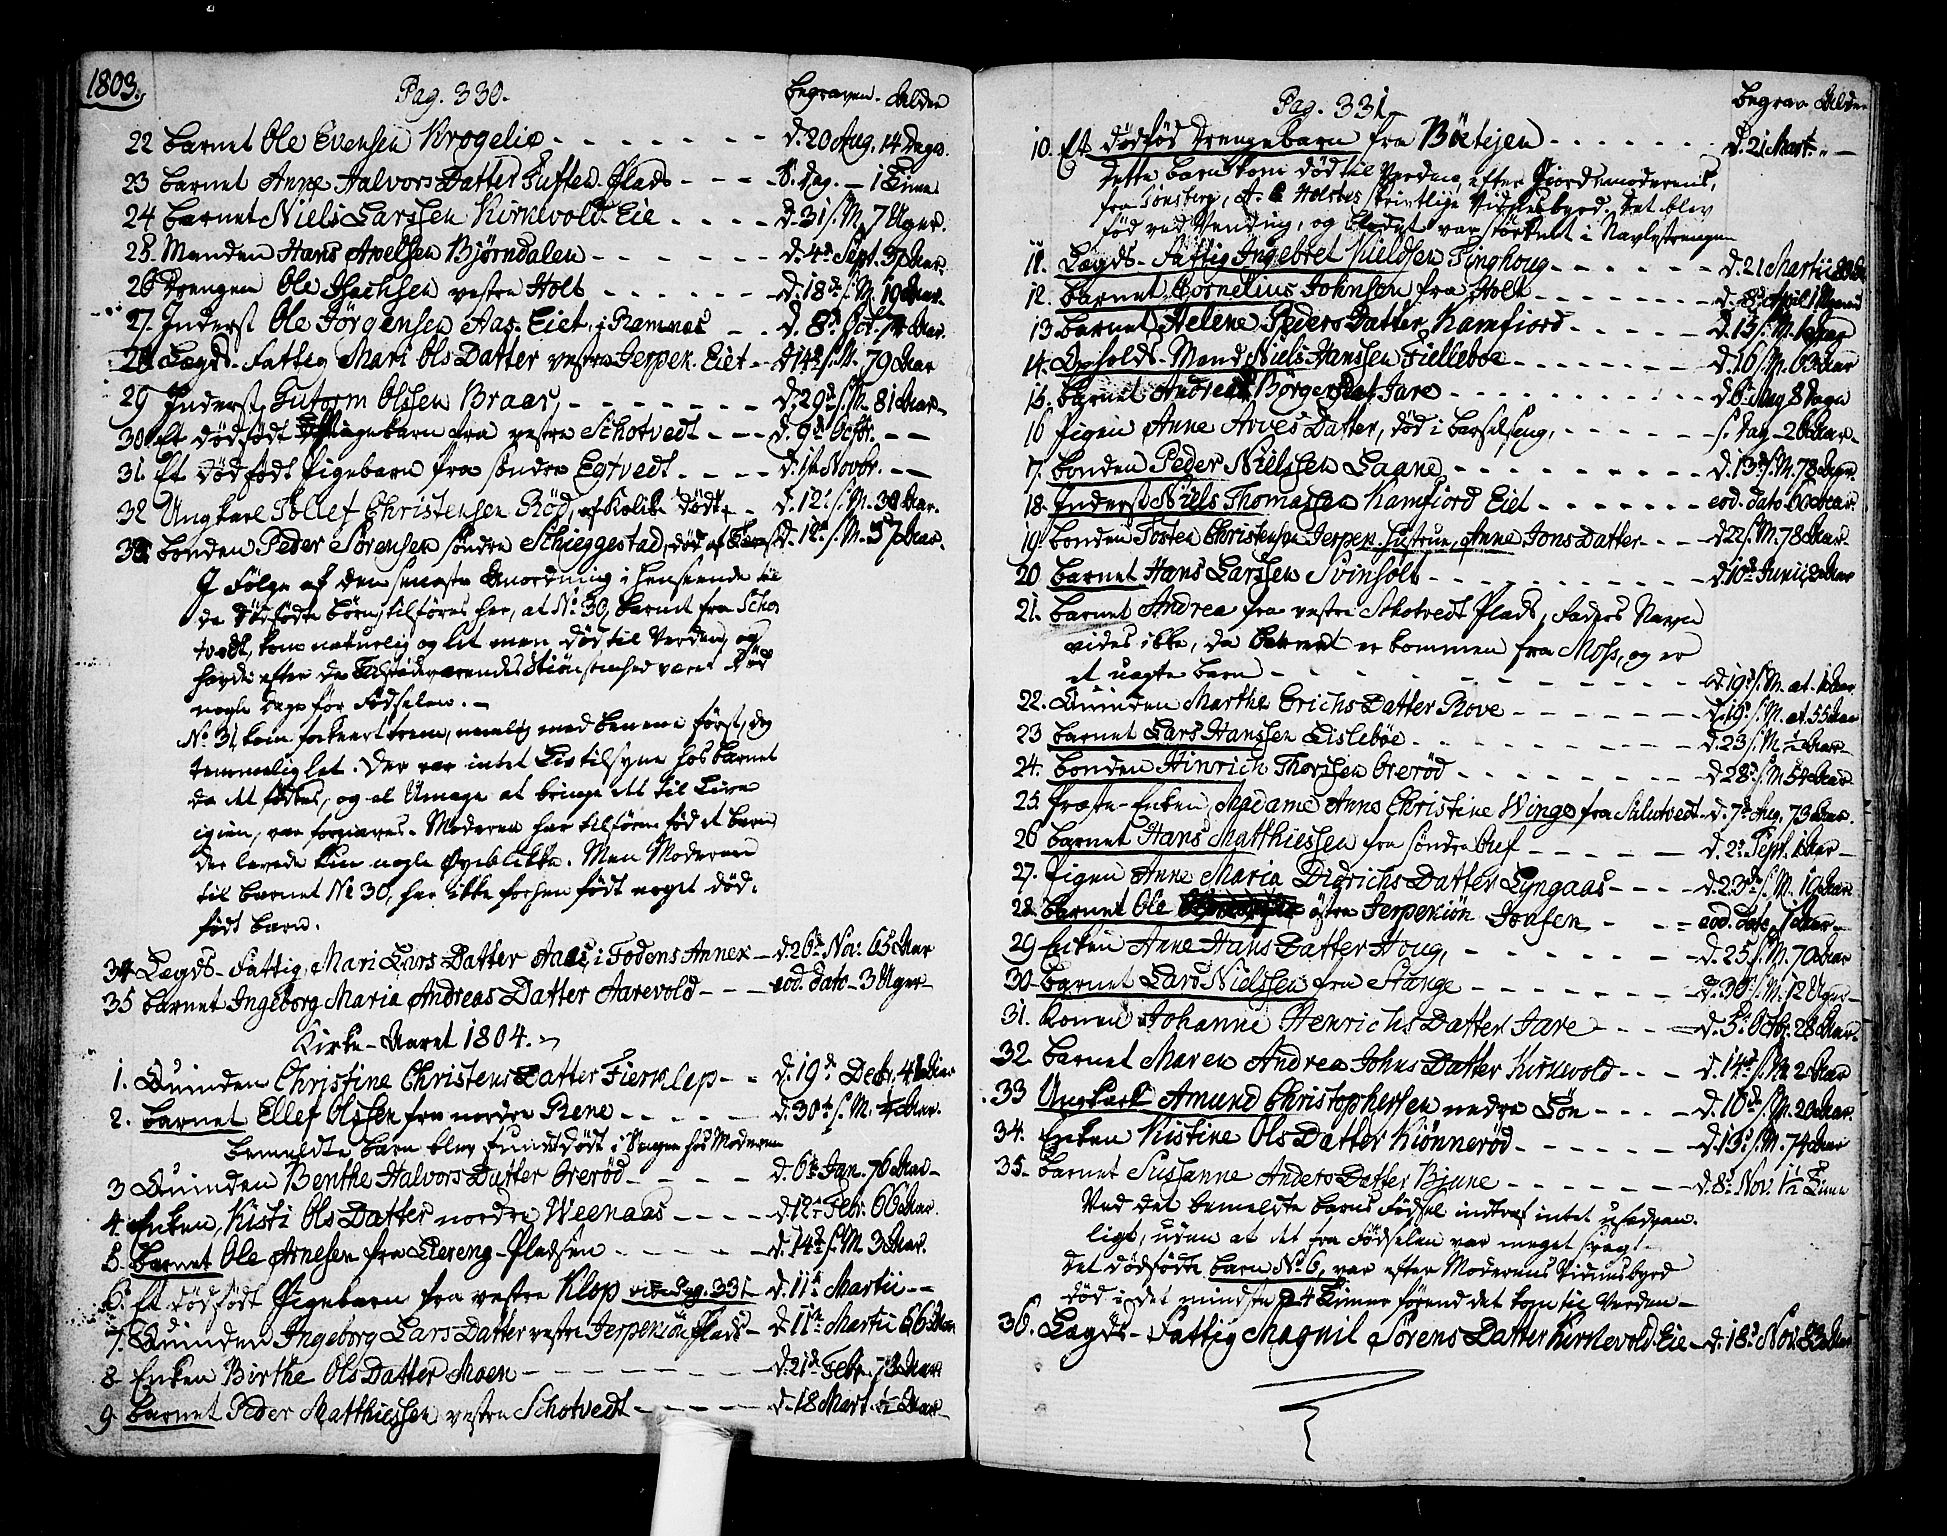 1803.
Pag. 330.
Begraven. Alder
22 Barnet Ole Evensen Krogelie d. 20 Aug. 14 Dage.
23 Barnet Anne Halvors Datter Tuften Plads S. Dag. 1 Time
24 Barnet Niels Larssen Kirkevold Eie d. 31 s. M. 7 Uger.
25. Manden Hans Axelsen Bjørndalen d. 4de Sept. Aar.
26 Drengen Ole Isachsen vestre Holt d. 18de s. M. 19 Aar.
27. Inderst Ole Jörgensen Aas-Eiet i Ramnes d. 8de Oct. Aar.
28 Lægds-Fattig Mari Ols Datter vestre Jerpen-Eiet d. 14de s. M. 79 Aar
29 Inderst Gutorm Olssen Braar, d. 29de s. M. 81 Aar
30 Et dødfødt barn fra vestre Schotvedt d. 9de Octbr.
31. Et dødfødt Pigebarn fra söndre Egtvedt d. Novbr.
32 Ungkarl Tollef Christensen Röd, af Kolik död d. 12te s. M. 38 Aar.
33 Bonden Peder Sörensen söndre Schieggestad, død af d. 12te s. M. 57 Aar.
I Følge af den seneste Anordning i Henseende til
de dødfødte børn tilføres her, at No. 30, barnet fra Scho
tvedt, kom naturlig og let men død til Verden, og
havde efter de Tilstædeværendes Skiønsomhed været død
nogle dage før Fødselen.
No. 31 kom forkeert frem, nemlig med benene først, dog
temmelig let. Der var intet Liv tilsyne hos barnet
da det fødtes, og al Umage at bringe det til Live
igien, var forgiæves. Moderen har tilforn født et barn
der levede kun nogle Øyeblikke. Men Moderen
til barnet No 30, har ikke forhen født noget død-
født barn.
34 Lægds-Fattig, Mari Lars Datter Aas i Fodens Annex d. 26de Nov. 65 Aar
35 Barnet Ingeborg Maria Andreas Datter Aarevold eod. dato 3 Uger
Kirke-Aaret 1804.
1. Quinden Christine Christens Datter Fierklep d. 19de Decbr. Aar
2. Barnet Ellef Olssen fra nordre Rene d. 30te s. M. Aar.
Bemeldte Barn blev fundet dødt i Sengen hos Moderen
3 Quinden Benthe Halvors Datter Orerød d. 6te Jan. 76 Aar
4. Enken, Kisti Ols Datter nordre Weenaas d. 12te Febr. 66 Aar.
5. Barnet Ole Arnesen fra Liereng-Pladsen d. 14de s. M. 3 Aar.
6. Et dødfødt Pigebarn fra vestre Klop vide Pag. 331 d. 11te Martii
7. Quinden Ingeborg Lars Datter vestre Jerpekiön Plads d. 11te Martii 66 Aar
8 Enken Birthe Ols Datter Moen d. 21de Febr. 73 Aar
9. Barnet Peder Matthiessen vestre Schotvedt d. 18 Mart. ½ Aar
Pag. 331
Begrav Alder
10. Et dødfød Drengebarn fra Böetejen d. 21 Mart.
Dette barn kom død til Verden, efter Jiordemoderens,
fra Tönsberg, Holstes skriftlige Vidnesbyrd. Det blev
fød ved Vending, og Blodet var størknet i Navlestrengen
11. Lægds-Fattig Ingebret Kieldsen Tinghoug d. 21 Martii Aar
12. Barnet Cornelius Johnsen fra Holt d. 8de April
13 Barnet Helene Peders Datter Kamfiord d. 15 s. M. Dag
14. Opholds-Mand Niels Hanssen Fielleböe d. 16 s. M. 63 Aar
15. Barnet Andrea Börgers Dat Jare d. 6te Maj 8 Dage
16 Pigen Anne Arves Datter, død i Barselseng, s. Dag 26 Aar
17. Bonden Peder Nielssen Laane d. 13de s. M. 78 Aar.
18. Inderst Niels Thomassen Kamfiord Eiet eod. dato Aar.
19. Bonden Tosten Christensen Jerpen Hustrue, Anne Jons Datter d. 22 s. M. 78 Aar.
20 Barnet Hans Larssen Svinholt d. 10de Junii, Aar
21. Barnet Andrea fra vestre Schotvedt Plads, Faders Navn
vides ikke, da barnet er kommen fra Moss, og er
et uægte barn d. 19de s. M. at. Aar
22. Quinden Marthe Erichs Datter Rove d. 19de s. M. at. 55 Aar
23 Barnet Lars Hanssen Lisleböe d. 23 s. M. ½ Aar
24. Bonden Hinrich Thorssen Orerød d. 28de s. M. 54 Aar
25 Præste-Enken Madame Anne Christine Winge fra Melsvedt d. 7de Aug. 73 Aar.
26 Barnet Hans Matthiessen fra söndre d. 2de Sept. 1 Aar
27. Pigen Anne Maria Didrichs Datter Lyngaas d. 23de s. M. Aar
28 Barnet Ole östre Jerpekiön Jonsen eod. dato Aar
29 Enken Anne Hans Datter Houg, d. 25 s. M. 70 Aar
30. Barnet Lars Nielssen fra Stange d. 30te s. M. 12 Uger
31. Konen Johanne Henrichs Datter Jare d. 5te Octbr. 28 Aar.
32 Barnet Maren Andrea Johns Datter Kirkevold d. 14de s. M. 2 Aar
33 Ungkarl Amund Christophersen nedre Lön d. 10de s. M. 20 Aar.
34. Enken Kistine Ols Datter Kiönneröd d. 13de s. M. 74 Aar
35. Barnet Sussanne Anders Datter Bjune d. 8de Nov. 1½ Time
Ved det bemeldte barns Fødsel indtraf intet usædvan-
ligt, uden at det fra Fødselen var meget svagt.
Det dødfødte barn No. 6, var efter Moderens Vidnesbyrd
død i det mindste 24 Timer førend det kom til Verden
36. Lægds-Fattig Magnil Sörens Datter Kirkevold-Eie d. 18de Nov. 83 Aar